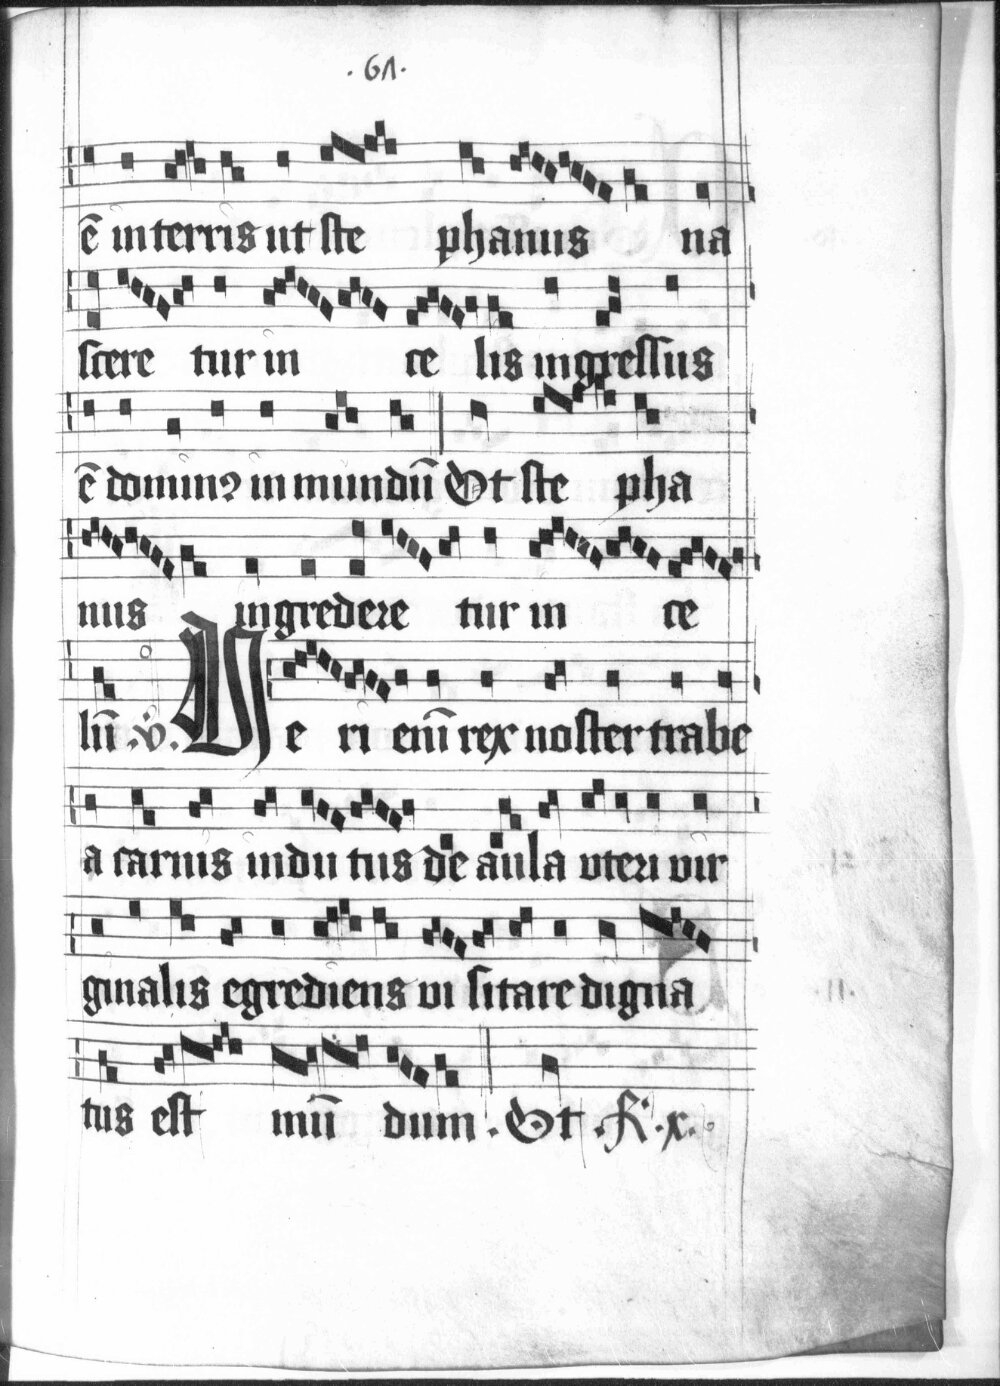 ·61·
ē in terris ut ste phanus na
scere tur in ce lis ingressus
ē domin9 in mundū Ut ste pha
nus ingredere tur in ce
lū .v. Ve ri enī rex noster trabe
a carnis indu tus de aula uteri vir
ginalis egrediens vi sitare digna
tus est mū dum . Ut . R . x .